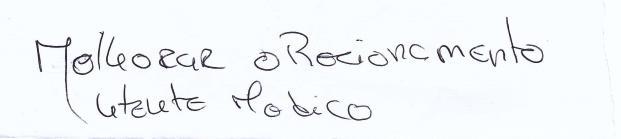 Melhorar o Relacionamento
Utente Medico